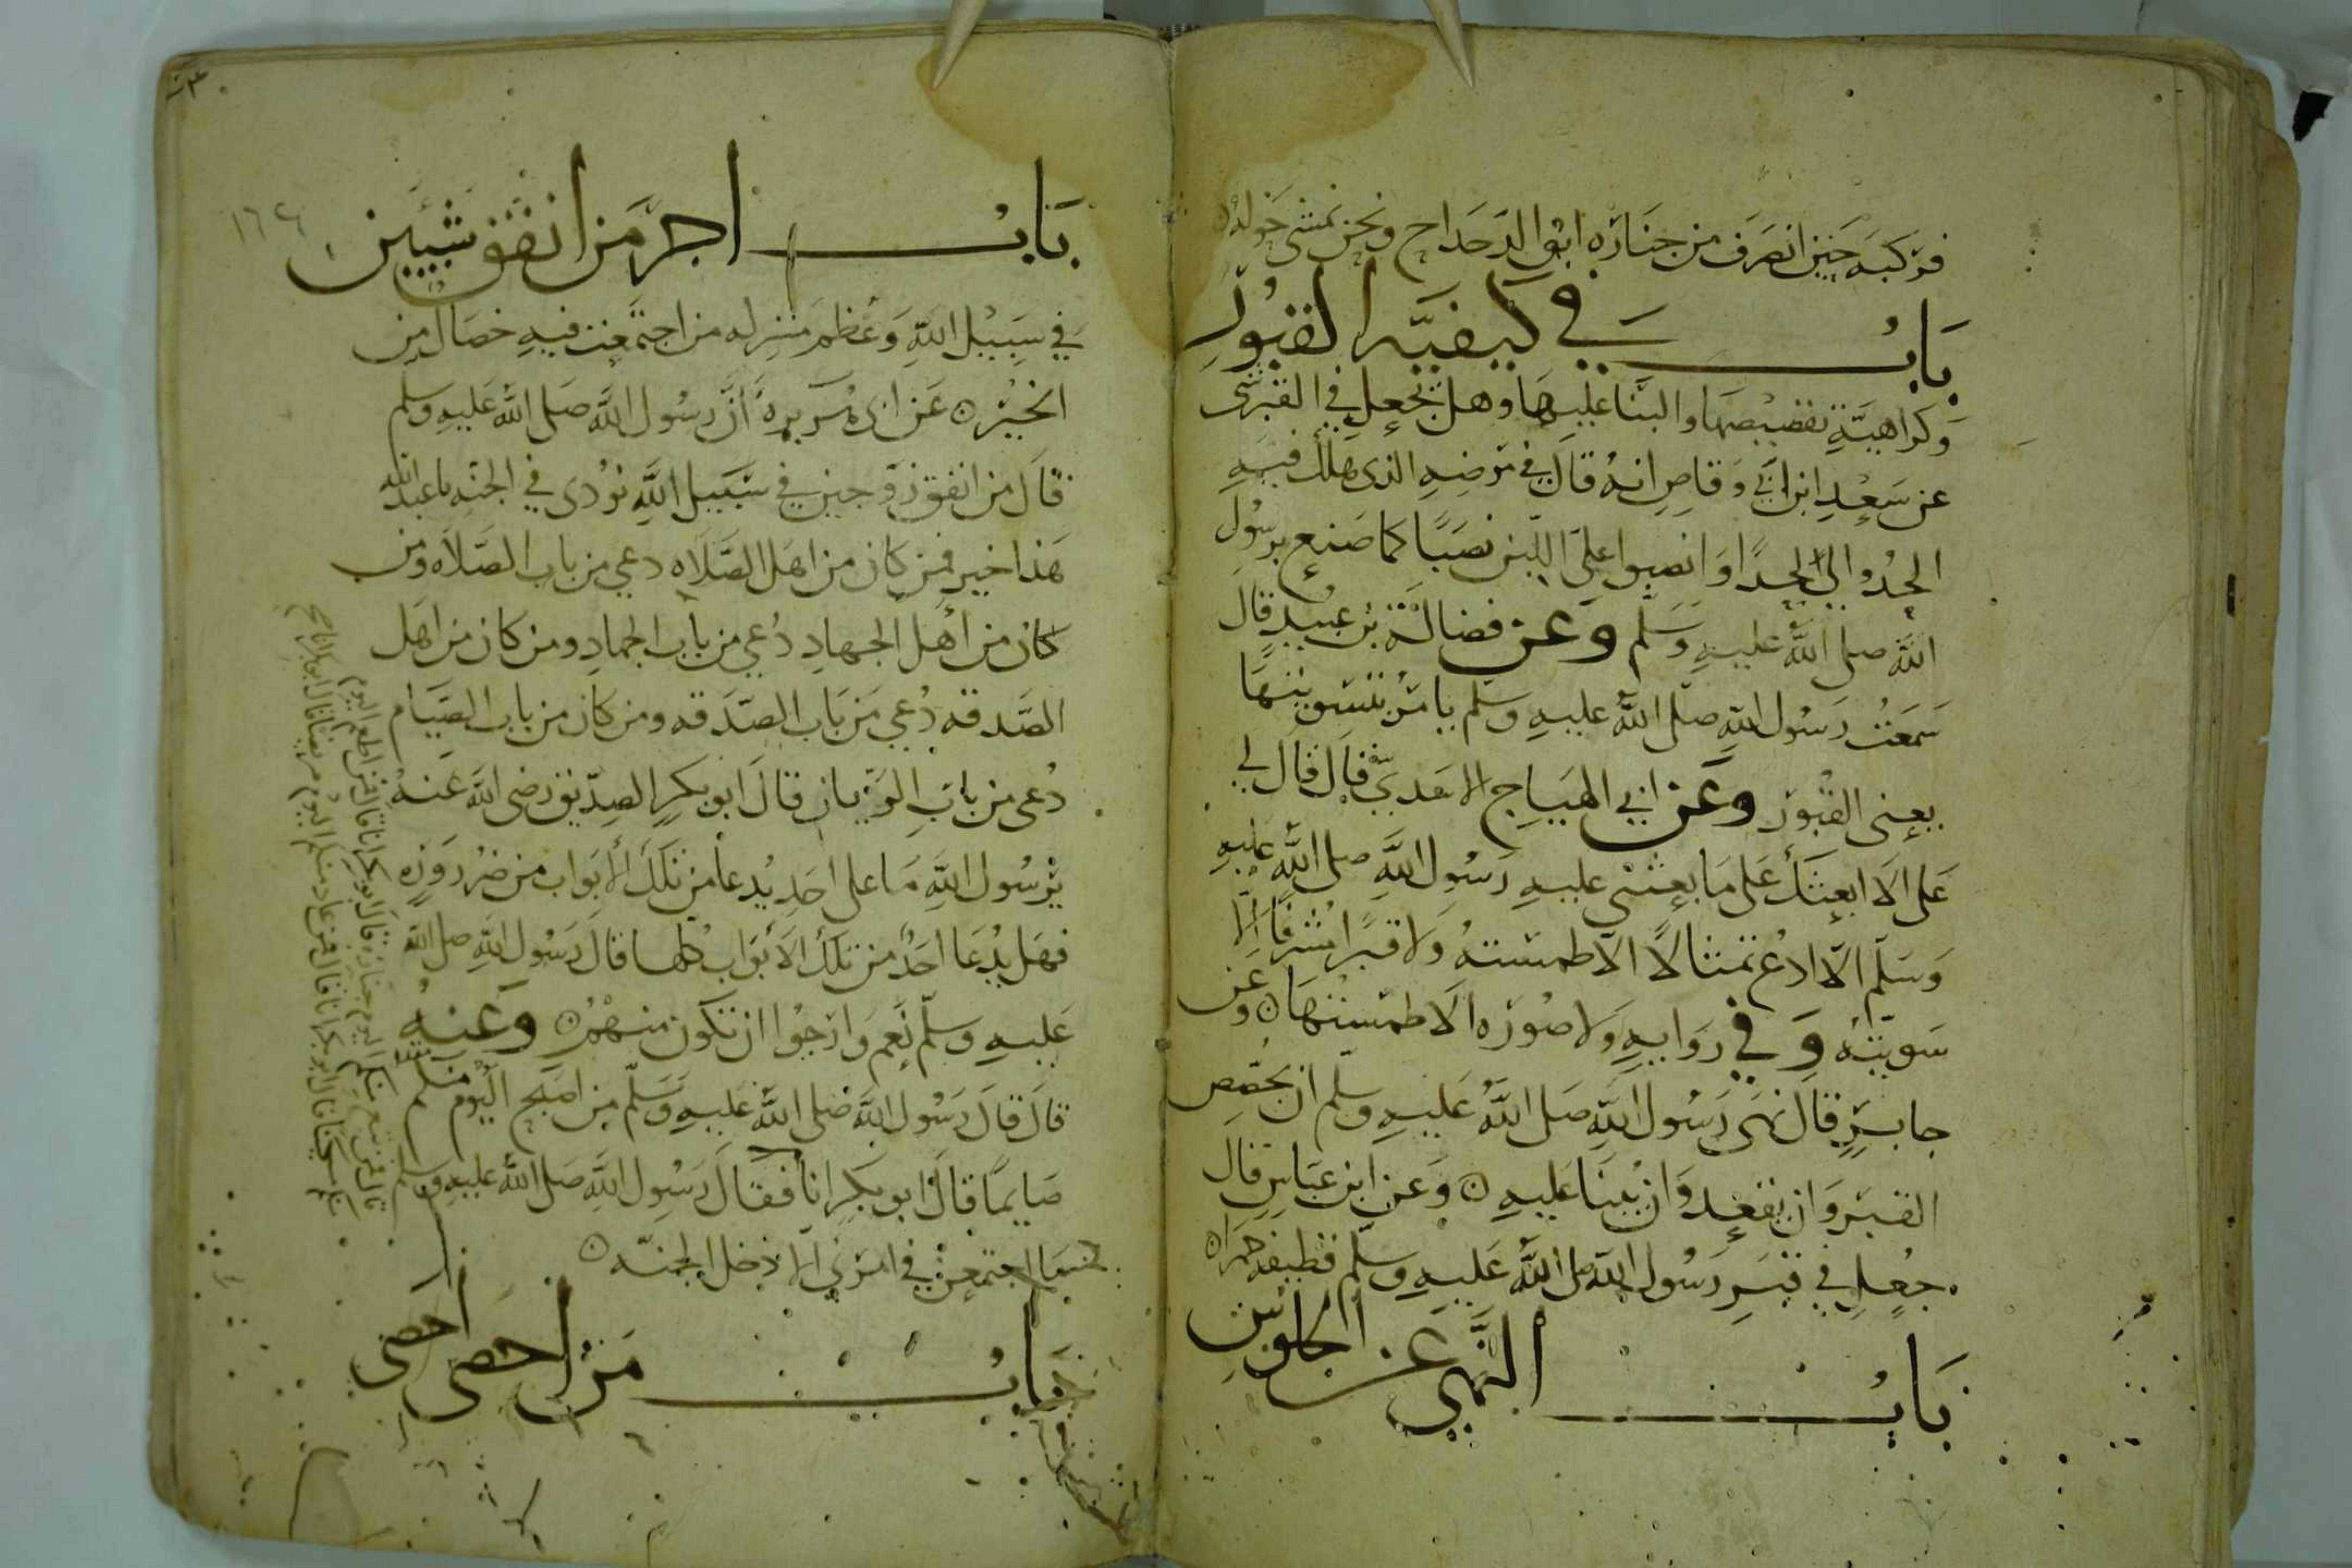 فركبه حين انصرف من جنازه ابو الدحداح ونحن نمشي حوله
باب في كيفية القبور
وكراهية تقصيصها والبنا عليها وهل يجعل في القبر شي
عن سعد ابن ابي وقاص انه قال في مرضه الذي هلك فيه
الحدوا لي لحدا وانصبوا علي اللبن نصبا كما صنع برسول
الله صلى الله عليه وسلم وعن فضالة بن عبيد قال
سمعت رسول الله صلى الله عليه وسلم يامر بتسويتها
يعني القبور وعن ابي الهياج الاسدي قال قال لي
على الا ابعثك على ما بعثني عليه رسول الله صلى الله عليه
وسلم الا ادع تمثالا الا طمسته ولا قبرا مشرفا الا
سويته وفي روايه ولا صوره الا طمستها وعن
جابر قال نهى رسول الله صلى الله عليه وسلم ان يجصص
القبر وان يقعد وان يبنا عليه وعن ابن عباس قال
جعل في قبر رسول الله صلى الله عليه وسلم قطيفه حمرا
باب النهي عن الجلوس
باب اجر من انفق شيين
في سبيل الله وعظم منزله من اجتمعت فيه خصال من
الخير عن ابي هريره ان رسول الله صلى الله عليه وسلم
قال من انفق زوجين في سبيل الله نودي في الجنه يا عبد الله
هذا خير فمن كان من اهل الصلاه دعي من باب الصلاه ومن
كان من اهل الجهاد دعي من باب الجهاد ومن كان من اهل
الصدقه دعي من باب الصدقه ومن كان من باب الصيام
دعي من باب الريان قال ابو بكر الصديق رضي الله عنه
يرسول الله ما على احد يدعا من تلك الابواب من ضروره
فهل يدعا احد من تلك الابواب كلها قال رسول الله صلى الله
عليه وسلم نعم وارجوا ان تكون منهم وعنه
قال قال رسول الله صلى الله عليه وسلم من اصبح اليوم منكم
صايما قال ابو بكر انا فقال رسول الله صلى الله عليه وسلم
ما اجتمعن في امرئ الا دخل الجنه
باب من احصى احصى
١٦٤
قال فمن تبع منكم اليوم جنازه قال ابو بكر انا قال فمن اطعم اليوم
منكم مسكينا قال ابو بكر انا قال فمن عاد منكم اليوم مريضا قال ابو بكر انا